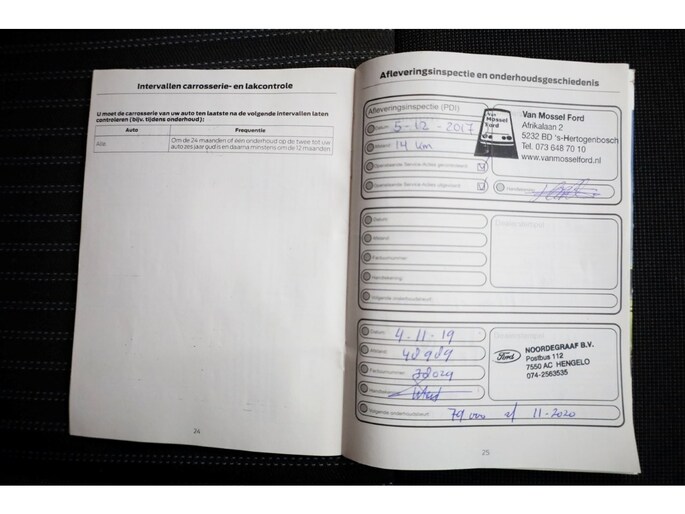 Intervallen carrosserie- en lakcontrole
U moet de carrosserie van uw auto ten laatste na de volgende intervallen laten
controleren (bijv. tijdens onderhoud):
Auto Frequentie
Alle. Om de 24 maanden of één onderhoud op de twee tot uw
auto zes jaar oud is en daarna minstens om de 12 maanden
24
Afleveringsinspectie en onderhoudsgeschiedenis
Afleveringsinspectie (PDI)
Datum: 5-12-2017
Afstand: 14 km
Van
Mossel
Ford
Van Mossel Ford
Afrikalaan 2
5232 BD 's-Hertogenbosch
Tel. 073 648 70 10
www.vanmosselford.nl
Handtekening:
Datum:
Afstand:
Factuurnummer:
Handtekening:
Volgende onderhoudsbeurt:
Datum: 4-11-19
Afstand: 48989
Factuurnummer: 38029
Handtekening:
Ford
NOORDEGRAAF B.V.
Postbus 112
7550 AC HENGELO
074-2563535
Volgende onderhoudsbeurt: 79000 of 11-2020
25